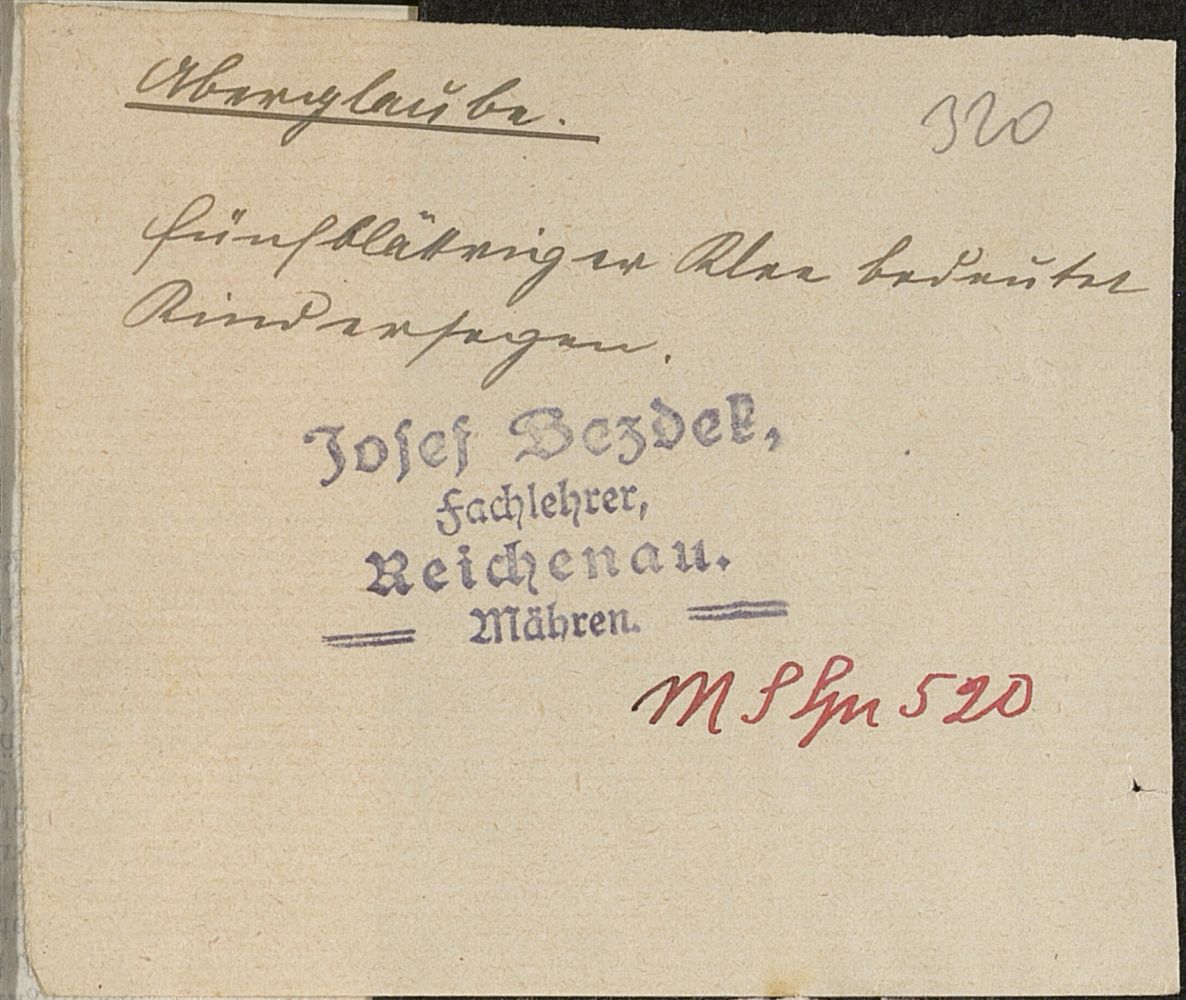 Aberglaube.
320
Fünfblättriger Klee bedeutet
Kindersegen.
Josef Bezdek,
Fachlehrer,
Reichenau.
Mähren.
520